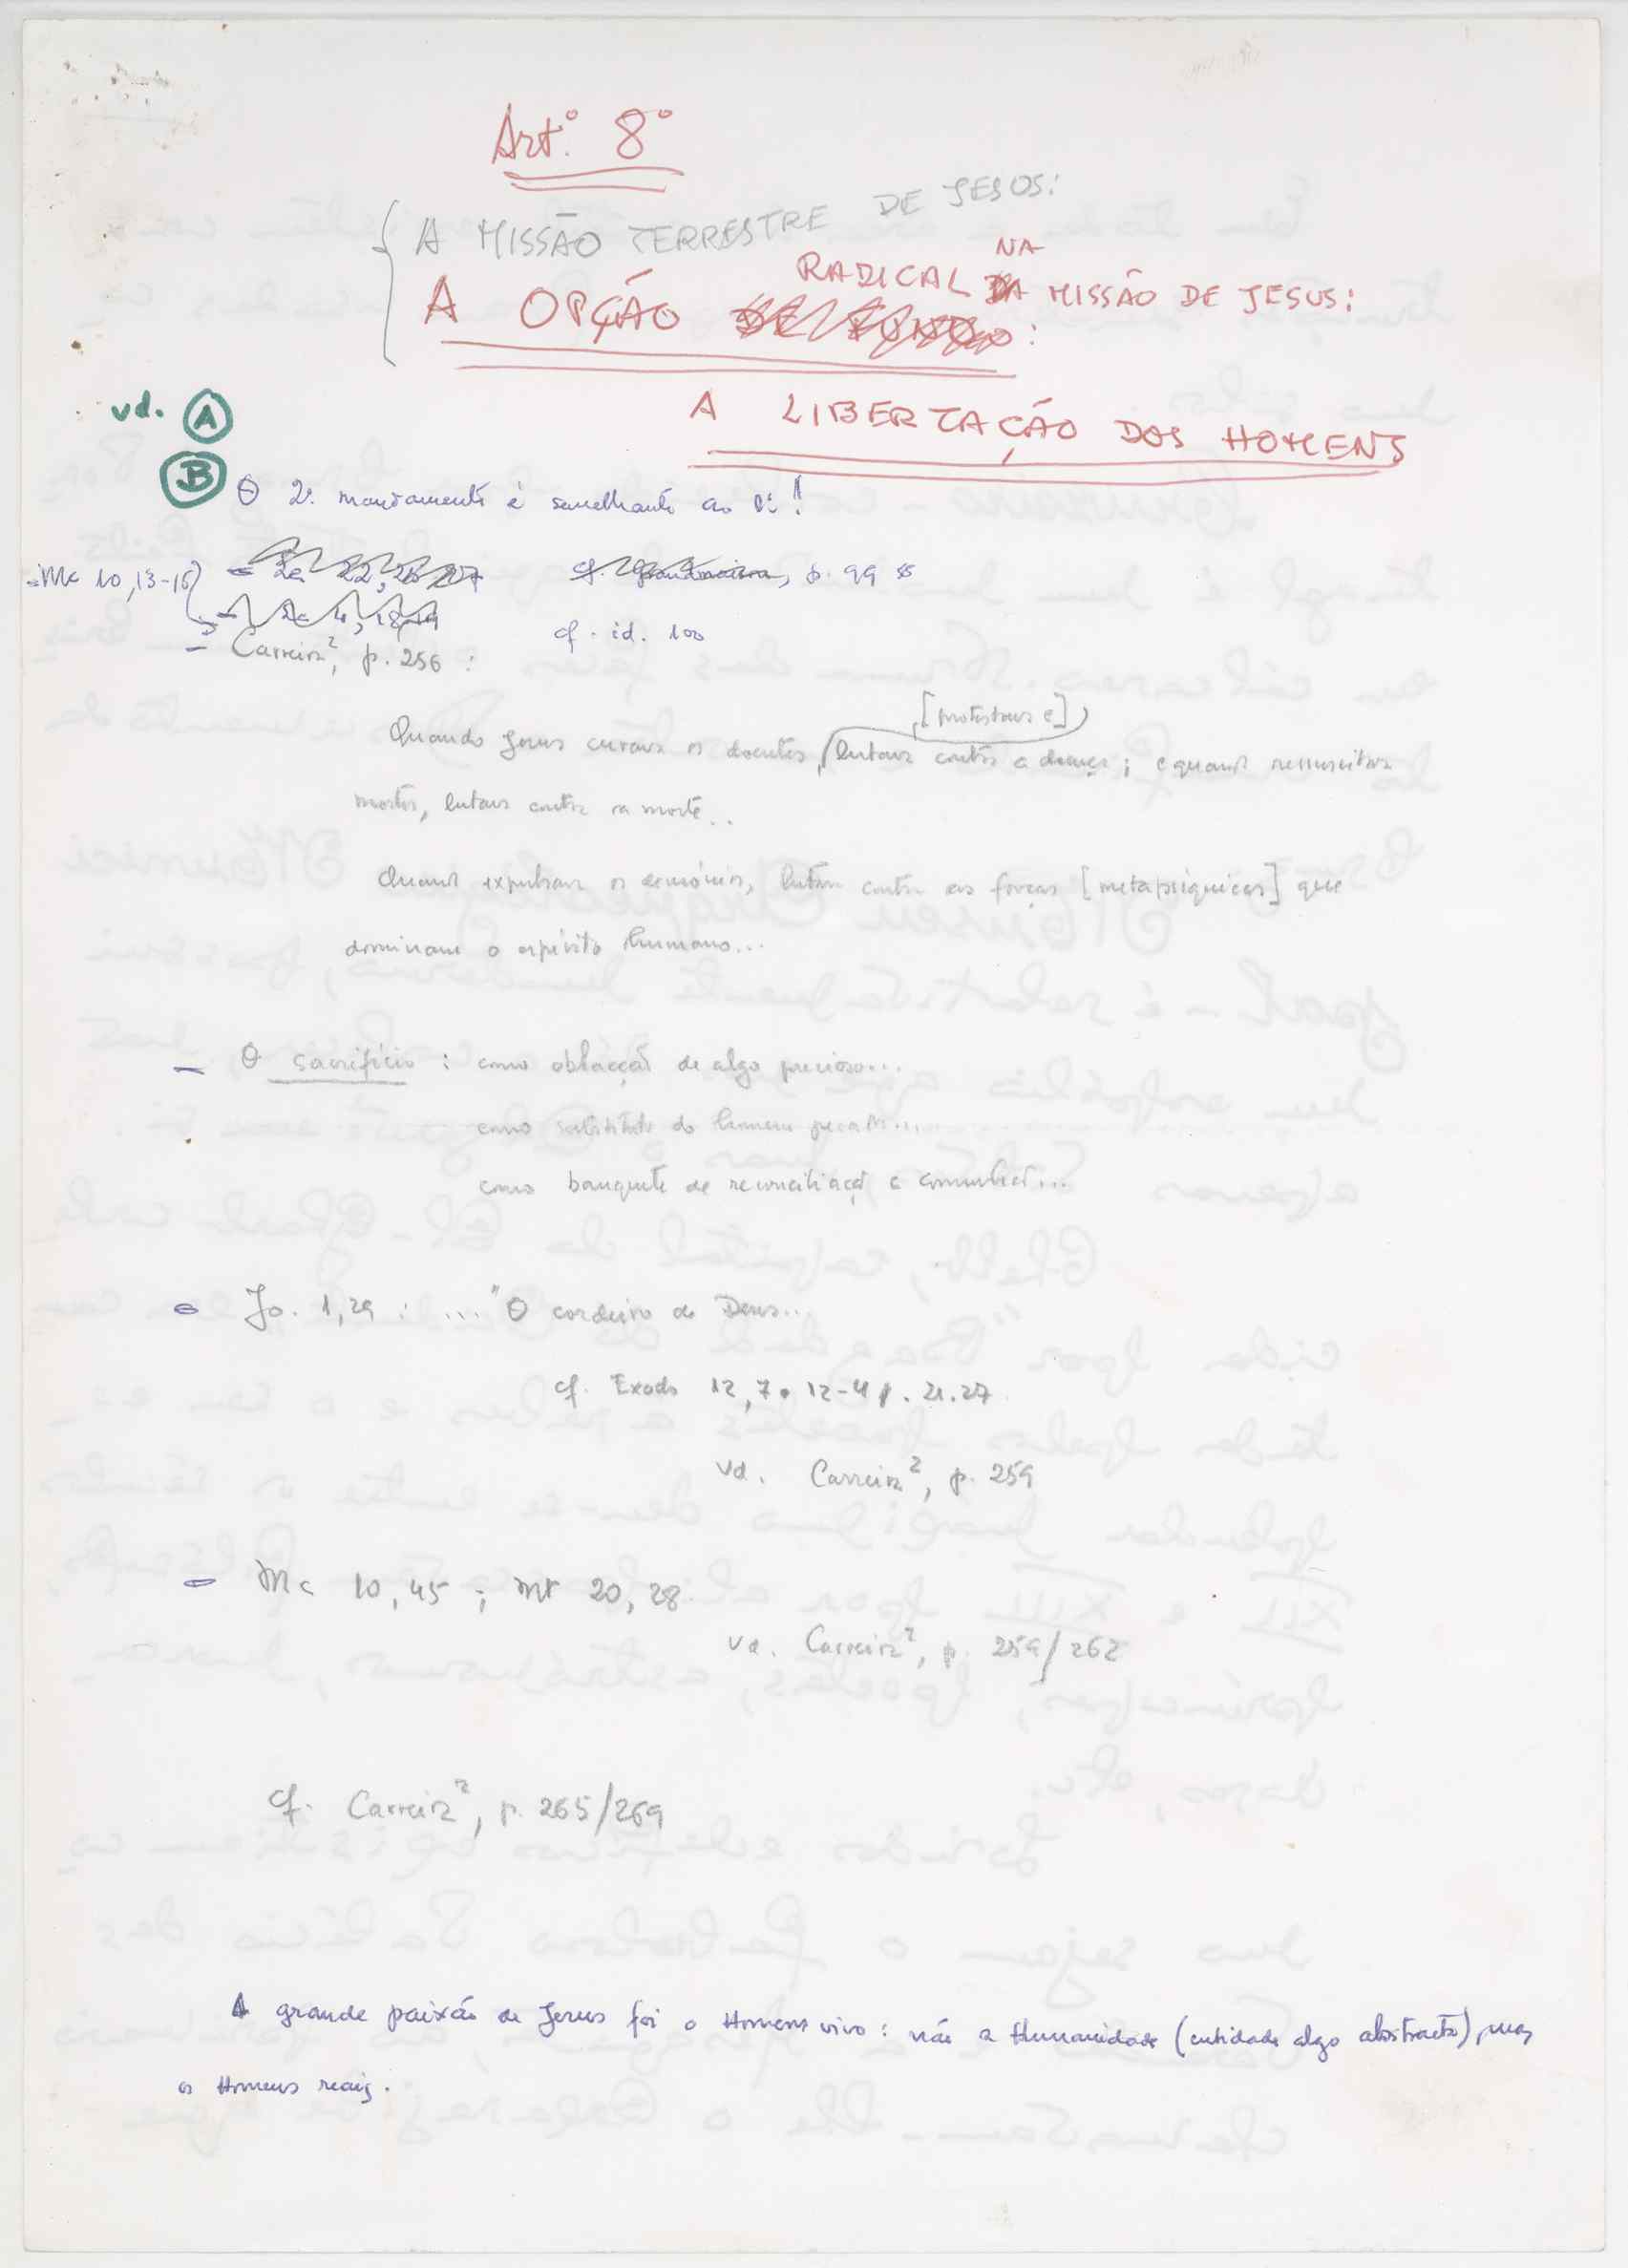 Art.º 8º
A MISSÃO TERRESTRE DE JESUS:
NA
RADICAL DA MISSÃO DE JESUS:
A OPÇÃO DE FUNDO:
vd. A
A LIBERTAÇÃO DOS HOMENS
B O 2º mandamento é semelhante ao 1º!
- Mc 10,13-16) - Lc 22, 26 27 cf. , p. 99 s
- Lc 4, 18,19 cf. id. 100
- Carreira², p. 256 :
[protestava e]
Quando Jesus curava os doentes, lutava contra a doença; e quando ressuscitava
mortos, lutava contra a morte..
Quando expulsava os demónios, lutava contra as forças [metapsíquicas] que
dominam o espírito humano...
- O sacrifício : como oblacção de algo precioso...
como substituto do homem pecador...
como banquete de reconciliação e comunhão...
- Jo. 1,29 : ... "O cordeiro de Deus...
cf. Exodo 12,7 . 12-14 . 21.27
vd. Carreira², p. 259
- Mc 10,45 ; Mt 20,28
vd. Carreira², p. 259/262
cf. Carreira², p. 265/269
A grande paixão de Jesus foi o Homem vivo : não a Humanidade (entidade algo abstracta), mas
os Homens reais.